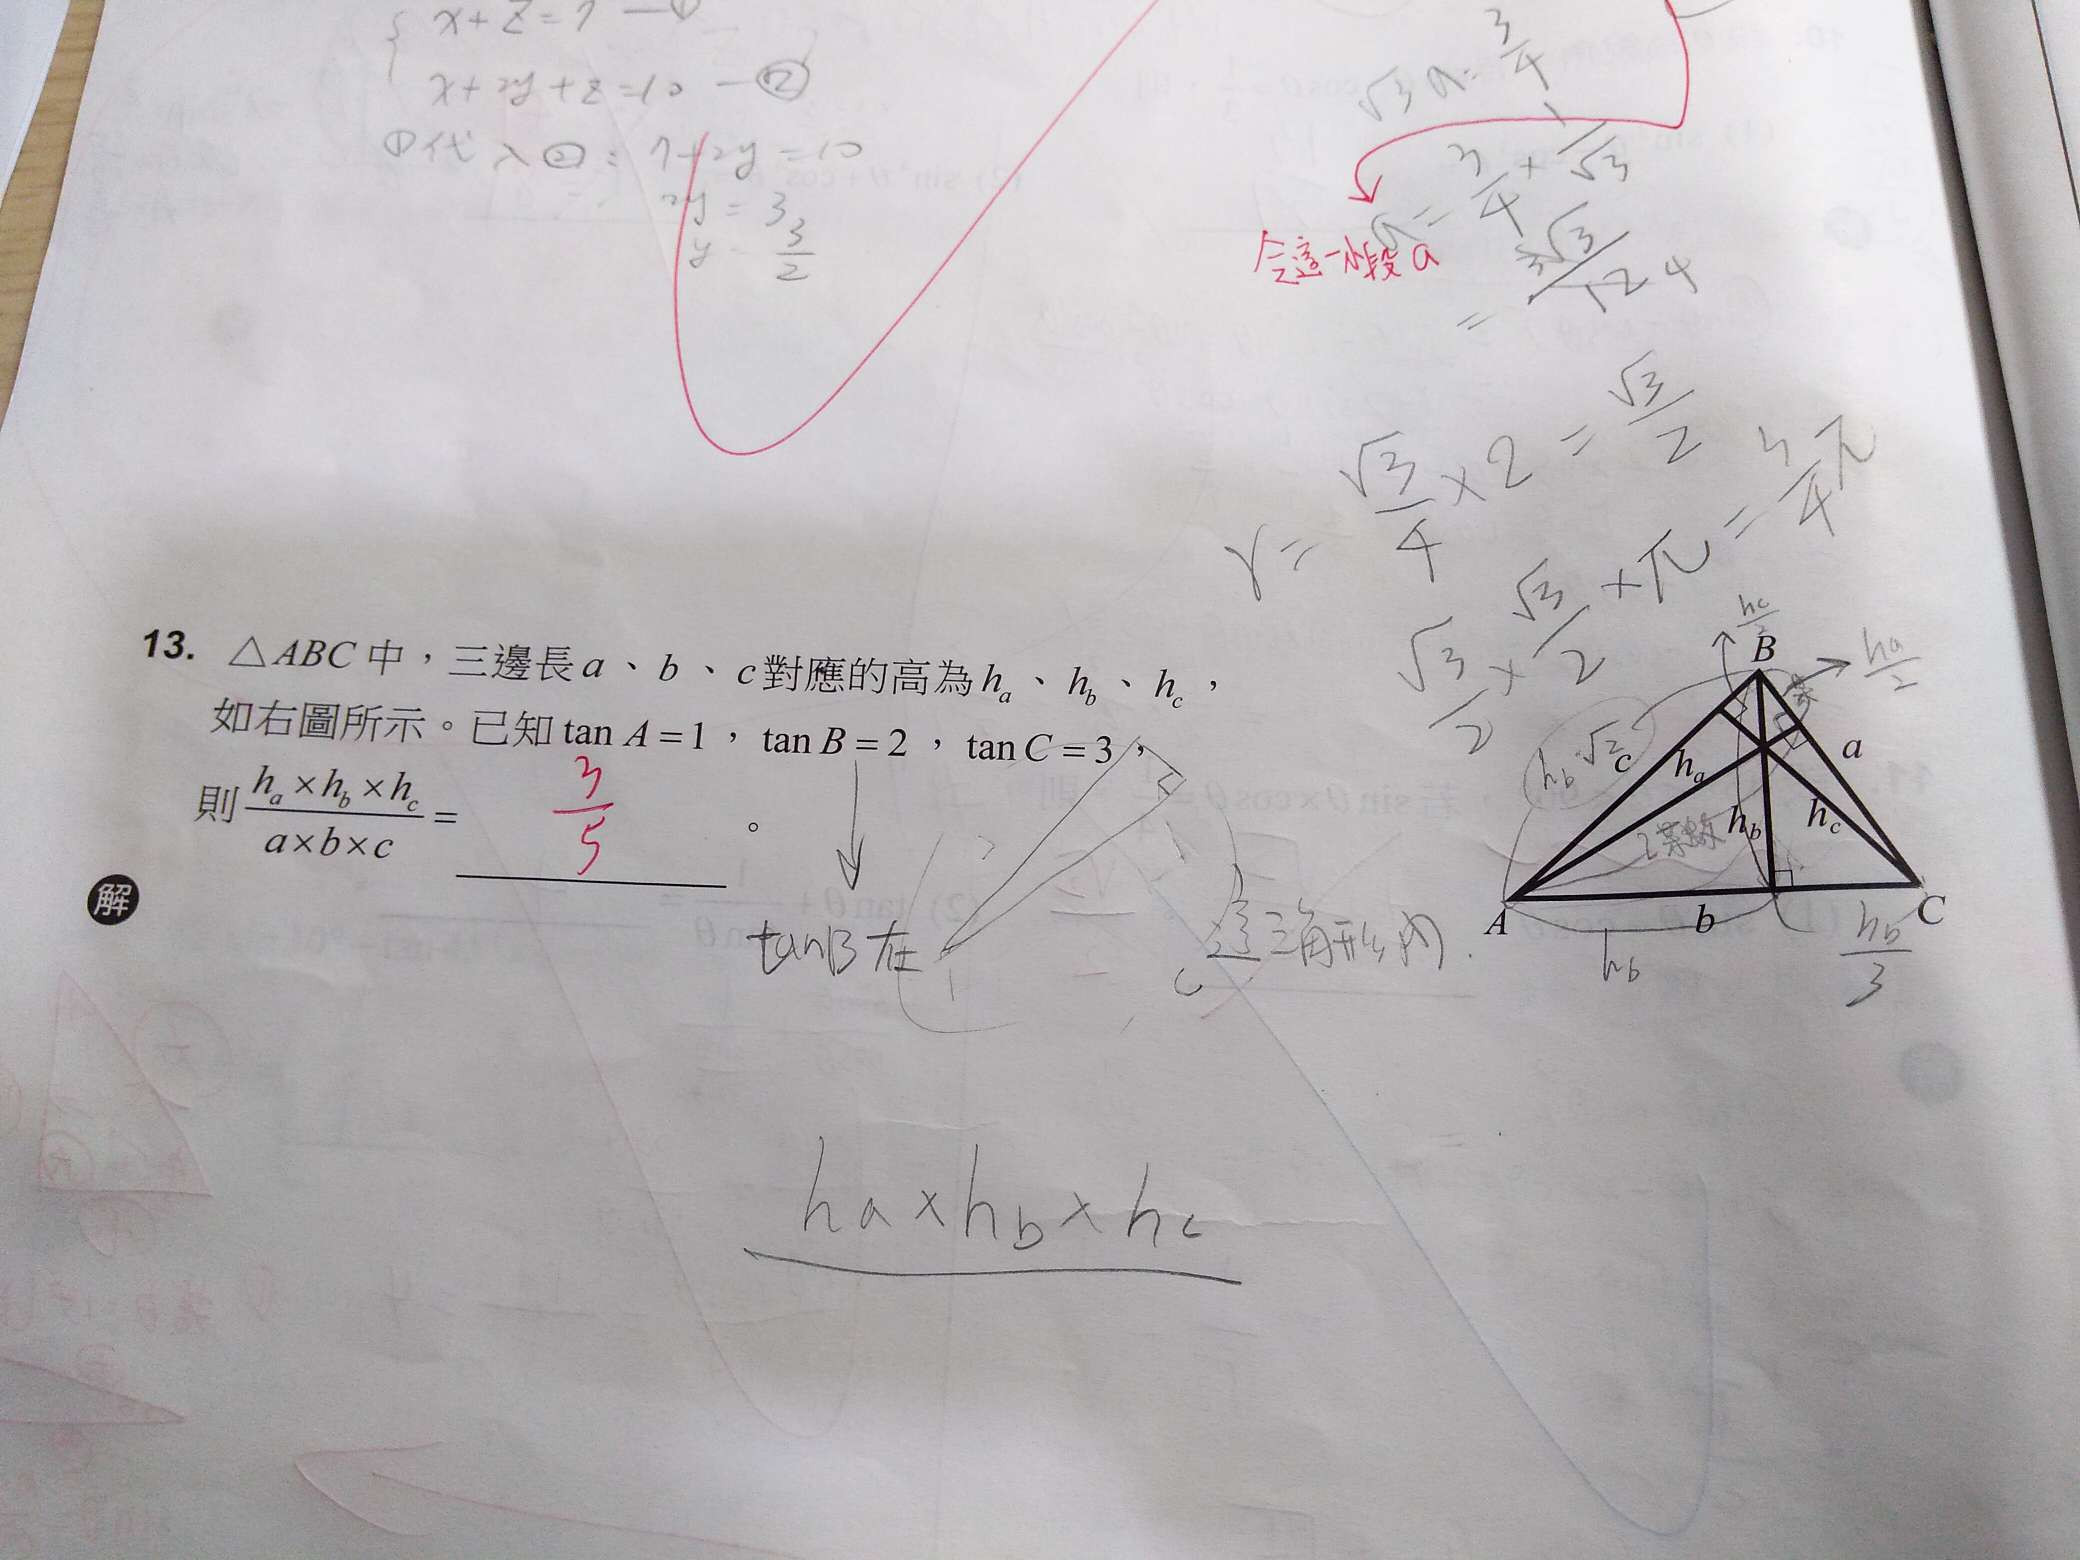 x+z=7 —①
x+2y+z=10 —②
①代入②：7+2y=10
2y=3
y=3/2
√3a=3/4
a=3/4×1/√3
=3√3/12 4
令這一小段a
r=√3/4×2=√3/2
√3/2×√3/2×π=3/4π
13. △ABC中，三邊長a、b、c對應的高為hₐ、h_b、h_c，
如右圖所示。已知tan A=1，tan B=2，tan C=3，
則 (hₐ×h_b×h_c)/(a×b×c)= 3/5 。
解
tanB在
這三角形內.
hc/2
ha/2
B
hb√2
c
ha
a
hb
hc
A
b
C
hb
hb/3
ha×hb×hc